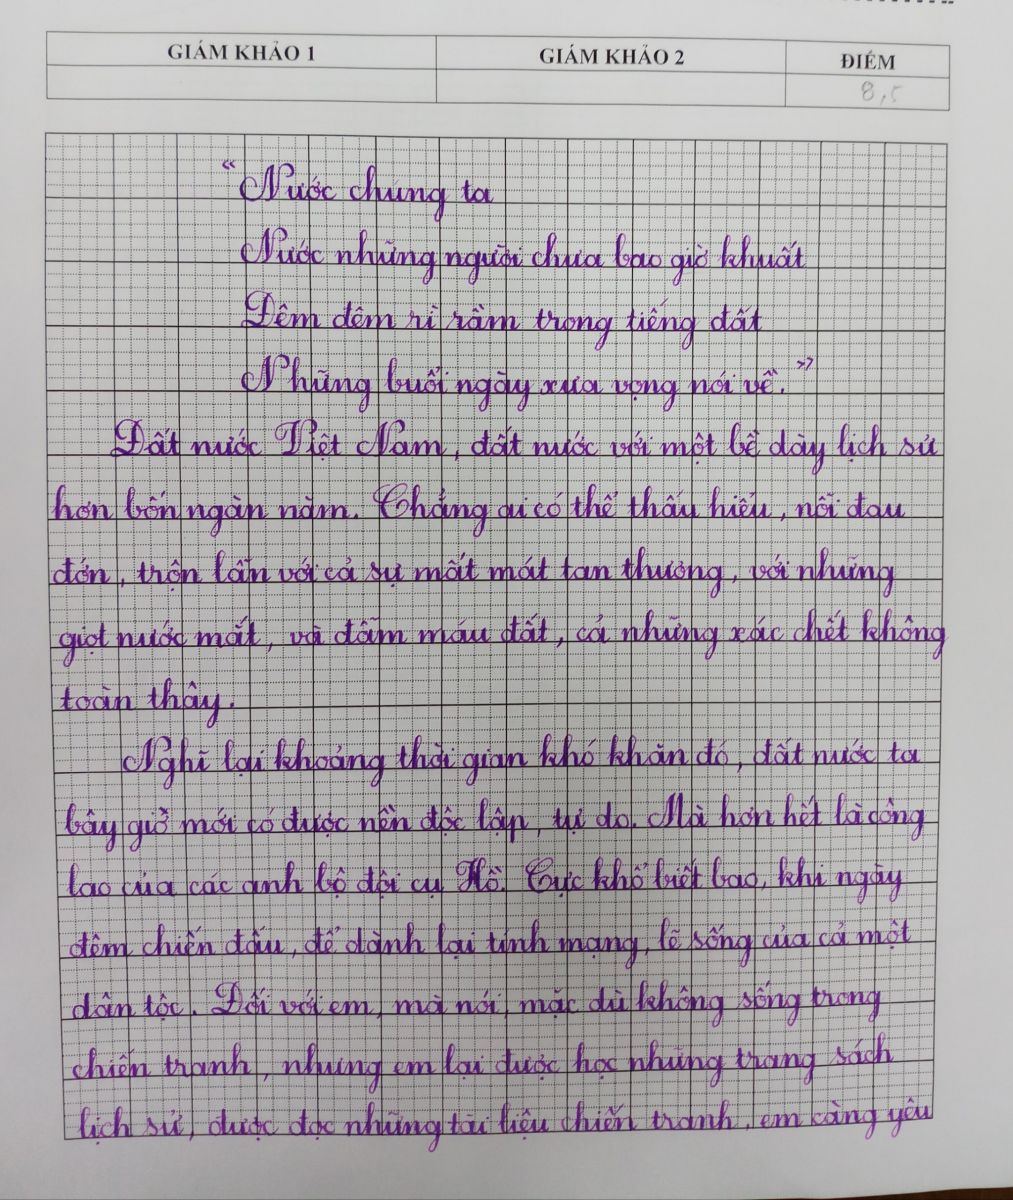 GIÁM KHẢO 1 GIÁM KHẢO 2 ĐIỂM
8,5
"Nước chúng ta
Nước những người chưa bao giờ khuất
Đêm đêm rì rầm trong tiếng đất
Những buổi ngày xưa vọng nói về."
Đất nước Việt Nam, đất nước với một bề dày lịch sử
hơn bốn ngàn năm. Chẳng ai có thể thấu hiểu, nỗi đau
đớn, trộn lẫn với cả sự mất mát tan thương, với những
giọt nước mắt, và đẫm máu đất, cả những xác chết không
toàn thây.
Nghĩ lại khoảng thời gian khó khăn đó, đất nước ta
bây giờ mới có được nền độc lập, tự do. Mà hơn hết là công
lao của các anh bộ đội cụ Hồ. Cực khổ biết bao, khi ngày
đêm chiến đấu, để dành lại tính mạng, lẽ sống của cả một
dân tộc. Đối với em, mà nói, mặc dù không sống trong
chiến tranh, nhưng em lại được học những trang sách
lịch sử, được đọc những tài liệu chiến tranh, em càng yêu